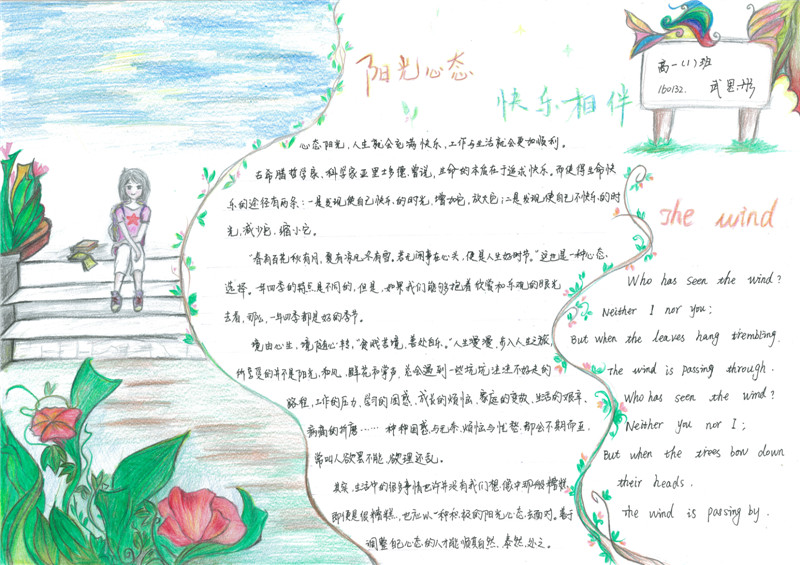 阳光心态
快乐相伴
高一(1)班
160132. 武思彤
心态阳光,人生就会充满快乐,工作与生活就会更加顺利。
古希腊哲学家,科学家亚里士多德曾说,生命的本质在于追求快乐。而使得生命快
乐的途径有两条:一是发现使自己快乐的时光,增加它,放大它;二是发现使自己不快乐的时
光,减少它,缩小它。
“春有百花秋有月,夏有凉风冬有雪。若无闲事在心头,便是人生好时节。”这也是一种心态
选择。一年四季的特点是不同的,但是,如果我们能够抱着欣赏和乐观的眼光
去看,那么,一年四季都是好的季节。
境由心生,境随心转,“爽战苦境,喜处自乐。”人生漫漫,步入人生之旅,
所喜爱的并不是阳光,和风,鲜花和掌声,总会遇到一些坑坑洼洼不好走的
路程,工作的压力,学习的困惑,成长的烦恼,家庭的变故,生活的艰辛,
病痛的折磨……种种困惑与无奈,烦恼与忧愁,都会不期而至,
常叫人欲罢不能,欲理还乱。
其实,生活中的很多事情也许并没有我们想像中那般糟糕,
即使是很糟糕,也应以一种积极的阳光心态去面对。善于
调整自己心态的人才能顺其自然,泰然处之。
The wind
Who has seen the wind?
Neither I nor you;
But when the leaves hang trembling,
The wind is passing through.
Who has seen the wind?
Neither you nor I;
But when the trees bow down
their heads.
The wind is passing by.